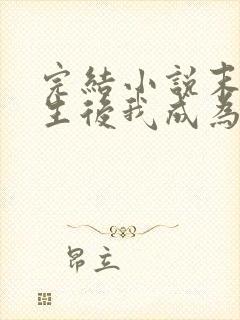 完結小說末
生後我成為
昂立